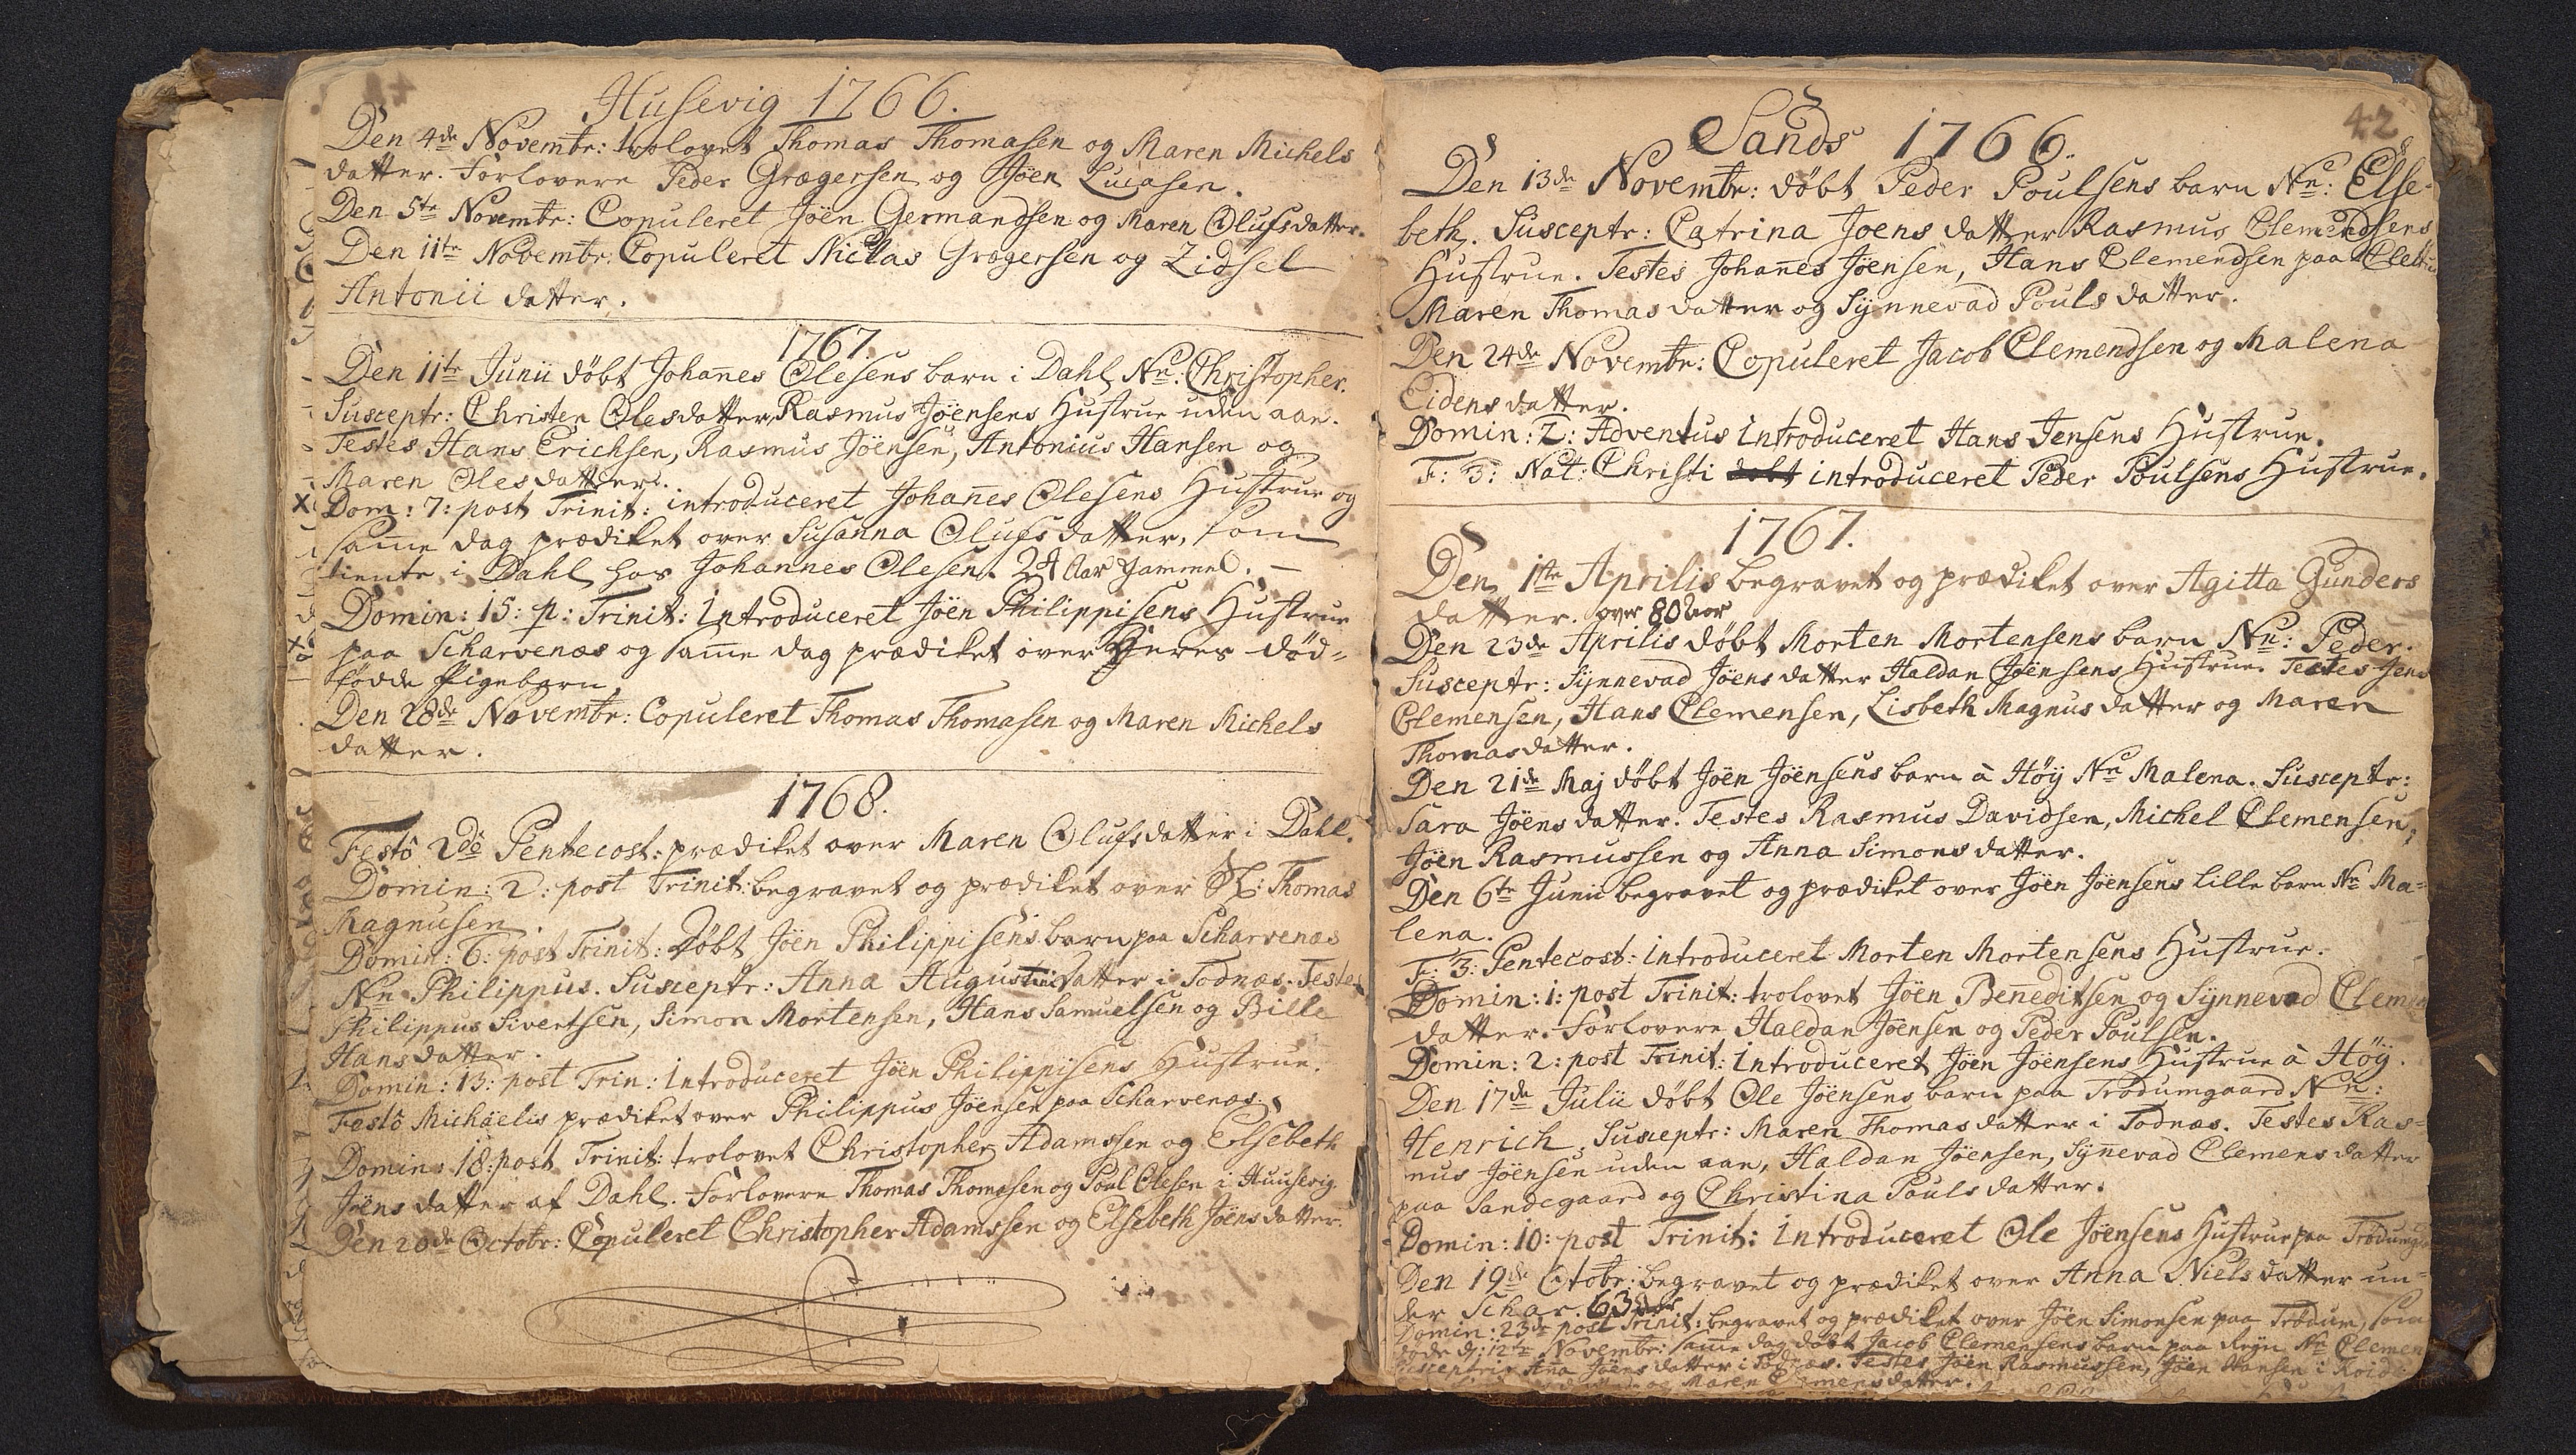 Husevig 1766.
Den 4de Novembr: trolovet Thomas Thomasen og Maren Michels
datter. Forlovere Peder Grægersen og Jöen Lucasen.
Den 5te Novembr: Copuleret Jöen Germandsen og Maren Olufsdatter.
Den 11te Novembr: Copuleret Niclas Grægersen og Zidsel
Antonii datter.
1767.
Den 11te Junii döbt Johan̄es Olesens barn i Dahl Nn: Christopher.
Susceptr: Christen Olesdatter, Rasmus Jöensens Hustrue uden aan.
Testes Hans Erichsen, Rasmus Jöensen, Antonius Hansen og
Maren Olesdatter.
x Dom: 7: post Trinit: introduceret Johan̄es Olesens Hustrue og
sam̄e dag prædiket over Susanna Olufsdatter, som
tiente i Dahl hos Johannes Olesen. 24 Aar gammel. —
Domin: 15: p: Trinit: Introduceret Jöen Philippisens Hustrue
paa Scharvenæs og sam̄e dag prædiket over Deres död-
födde Pigebarn
Den 28de Novembr: Copuleret Thomas Thomasen og Maren Michels
datter.
1768.
Festô 2dô Pentecost: prædiket over Maren Olufsdatter i Dahl.
Domin: 2: post Trinit: begravet og prædiket over Sl: Thomas
Magnusen
Domin: 6: post Trinit: Döbt Jöen Philippisens barn paa Scharvenæs
Nn Philippus. Susceptr: Anna Augustini datter i Todnæs. Testes
Philippus Sivertsen, Simon Mortensen, Hans Samuelsen og Bille
Hansdatter.
Domin: 13: post Trin: Introduceret Jöen Philippisens Hustrue.
Festô Michäelis prædiket over Philippus Jöensen paa Scharvenæs.
Domin: 18: post Trinit: trolovet Christopher Adamssen og Elsebeth
Jöensdatter af Dahl. Forlovere Thomas Thomasen og Poul Olesen i Huusevig.
Den 20de Octobr: Copuleret Christopher Adamssen og Elsebeth Jöensdatter.
42
Sands 1766.
Den 13de Novembr: döbt Peder Poulsens barn Nn: Else-
beth. Susceptr: Catrina Joensdatter Rasmus Clemendsens
Hustrue. Testes Johan̄es Jöensen, Hans Clemendsen paa
Maren Thomasdatter og Synnevad Poulsdatter.
Den 24de Novembr: Copuleret Jacob Clemendsen og Malena
Eidensdatter.
Domin: 2: Adventus Introduceret Hans Jensens Hustrue.
F: 3: Nat: Christi döbt introduceret Peder Poulsens Hustrue.
1767.
Den 1te Aprilis begravet og prædiket over Agitta Gunders
datter. over 80 Aar
Den 23de Aprilis döbt Morten Mortensens barn Nn: Peder.
Susceptr: Synnevad Jöensdatter Haldan Jöensens Hustrue. Testes Jens
Clemensen, Hans Clemensen, Lisbeth Magnusdatter og Maren
Thomasdatter.
Den 21de Maj döbt Jöen Jöensens barn à Höy Nn Malena. Susceptr:
Sara Jöensdatter. Testes Rasmus Davidsen, Michel Clemensen,
Jöen Rasmussen og Anna Simonsdatter.
Den 6te Junii begravet og prædiket over Jöen Jöensens lille barn Nn Ma-
lena.
F: 3: Pentecost: Introduceret Morten Mortensens Hustrue.
Domin: 1: post Trinit: trolovet Jöen Ben̄editsen og Synnevad Clemens
datter. Forlovere Haldan Jöensen og Peder Poulsen.
Domin: 2: post Trinit: Introduceret Jöen Jöensens Hustrue à Höy.
Den 17de Julii döbt Ole Jöensens barn paa Trödumgaard Nn:
Henrich. Susceptr: Maren Thomasdatter i Todnæs. Testes Ras-
mus Jöensen uden aan, Haldan Jöensen, Syn̄evad Clemensdatter
paa Sandegaard og Christina Poulsdatter.
Domin: 10: post Trinit: Introduceret Ole Jöensens Hustrue paa
Den 19de Octobr: begravet og prædiket over Anna Nielsdatter un-
der Schar. 63 Aar
Domin: 23de post Trinit: begravet og prædiket over Jöen Simonsen paa Trödum, som
döde d: 12te Novembr: sam̄e dag döbt Jacob Clemensens barn paa Reyn Nn Clemen
Susceptrix An̄a Jöensdatter i Todnæs. Testes Jöen Rasmussen, Jöen Hansen i
og Maren Clemensdatter.